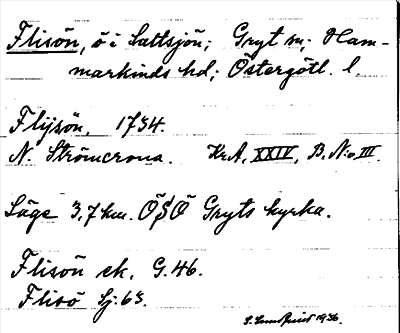 Flisön, ö i Saltsjön; Gryt sn; Ham-
markinds hd; Östergötl. l.
Flijsön. 1734.
N. Strömcrona. Kr.A, XXIV, B. N:o III.
Läge 3,7 km. ÖSÖ Gryts kyrka.
Flisön ek. G.46.
Flisö Sj. 63.
1936.